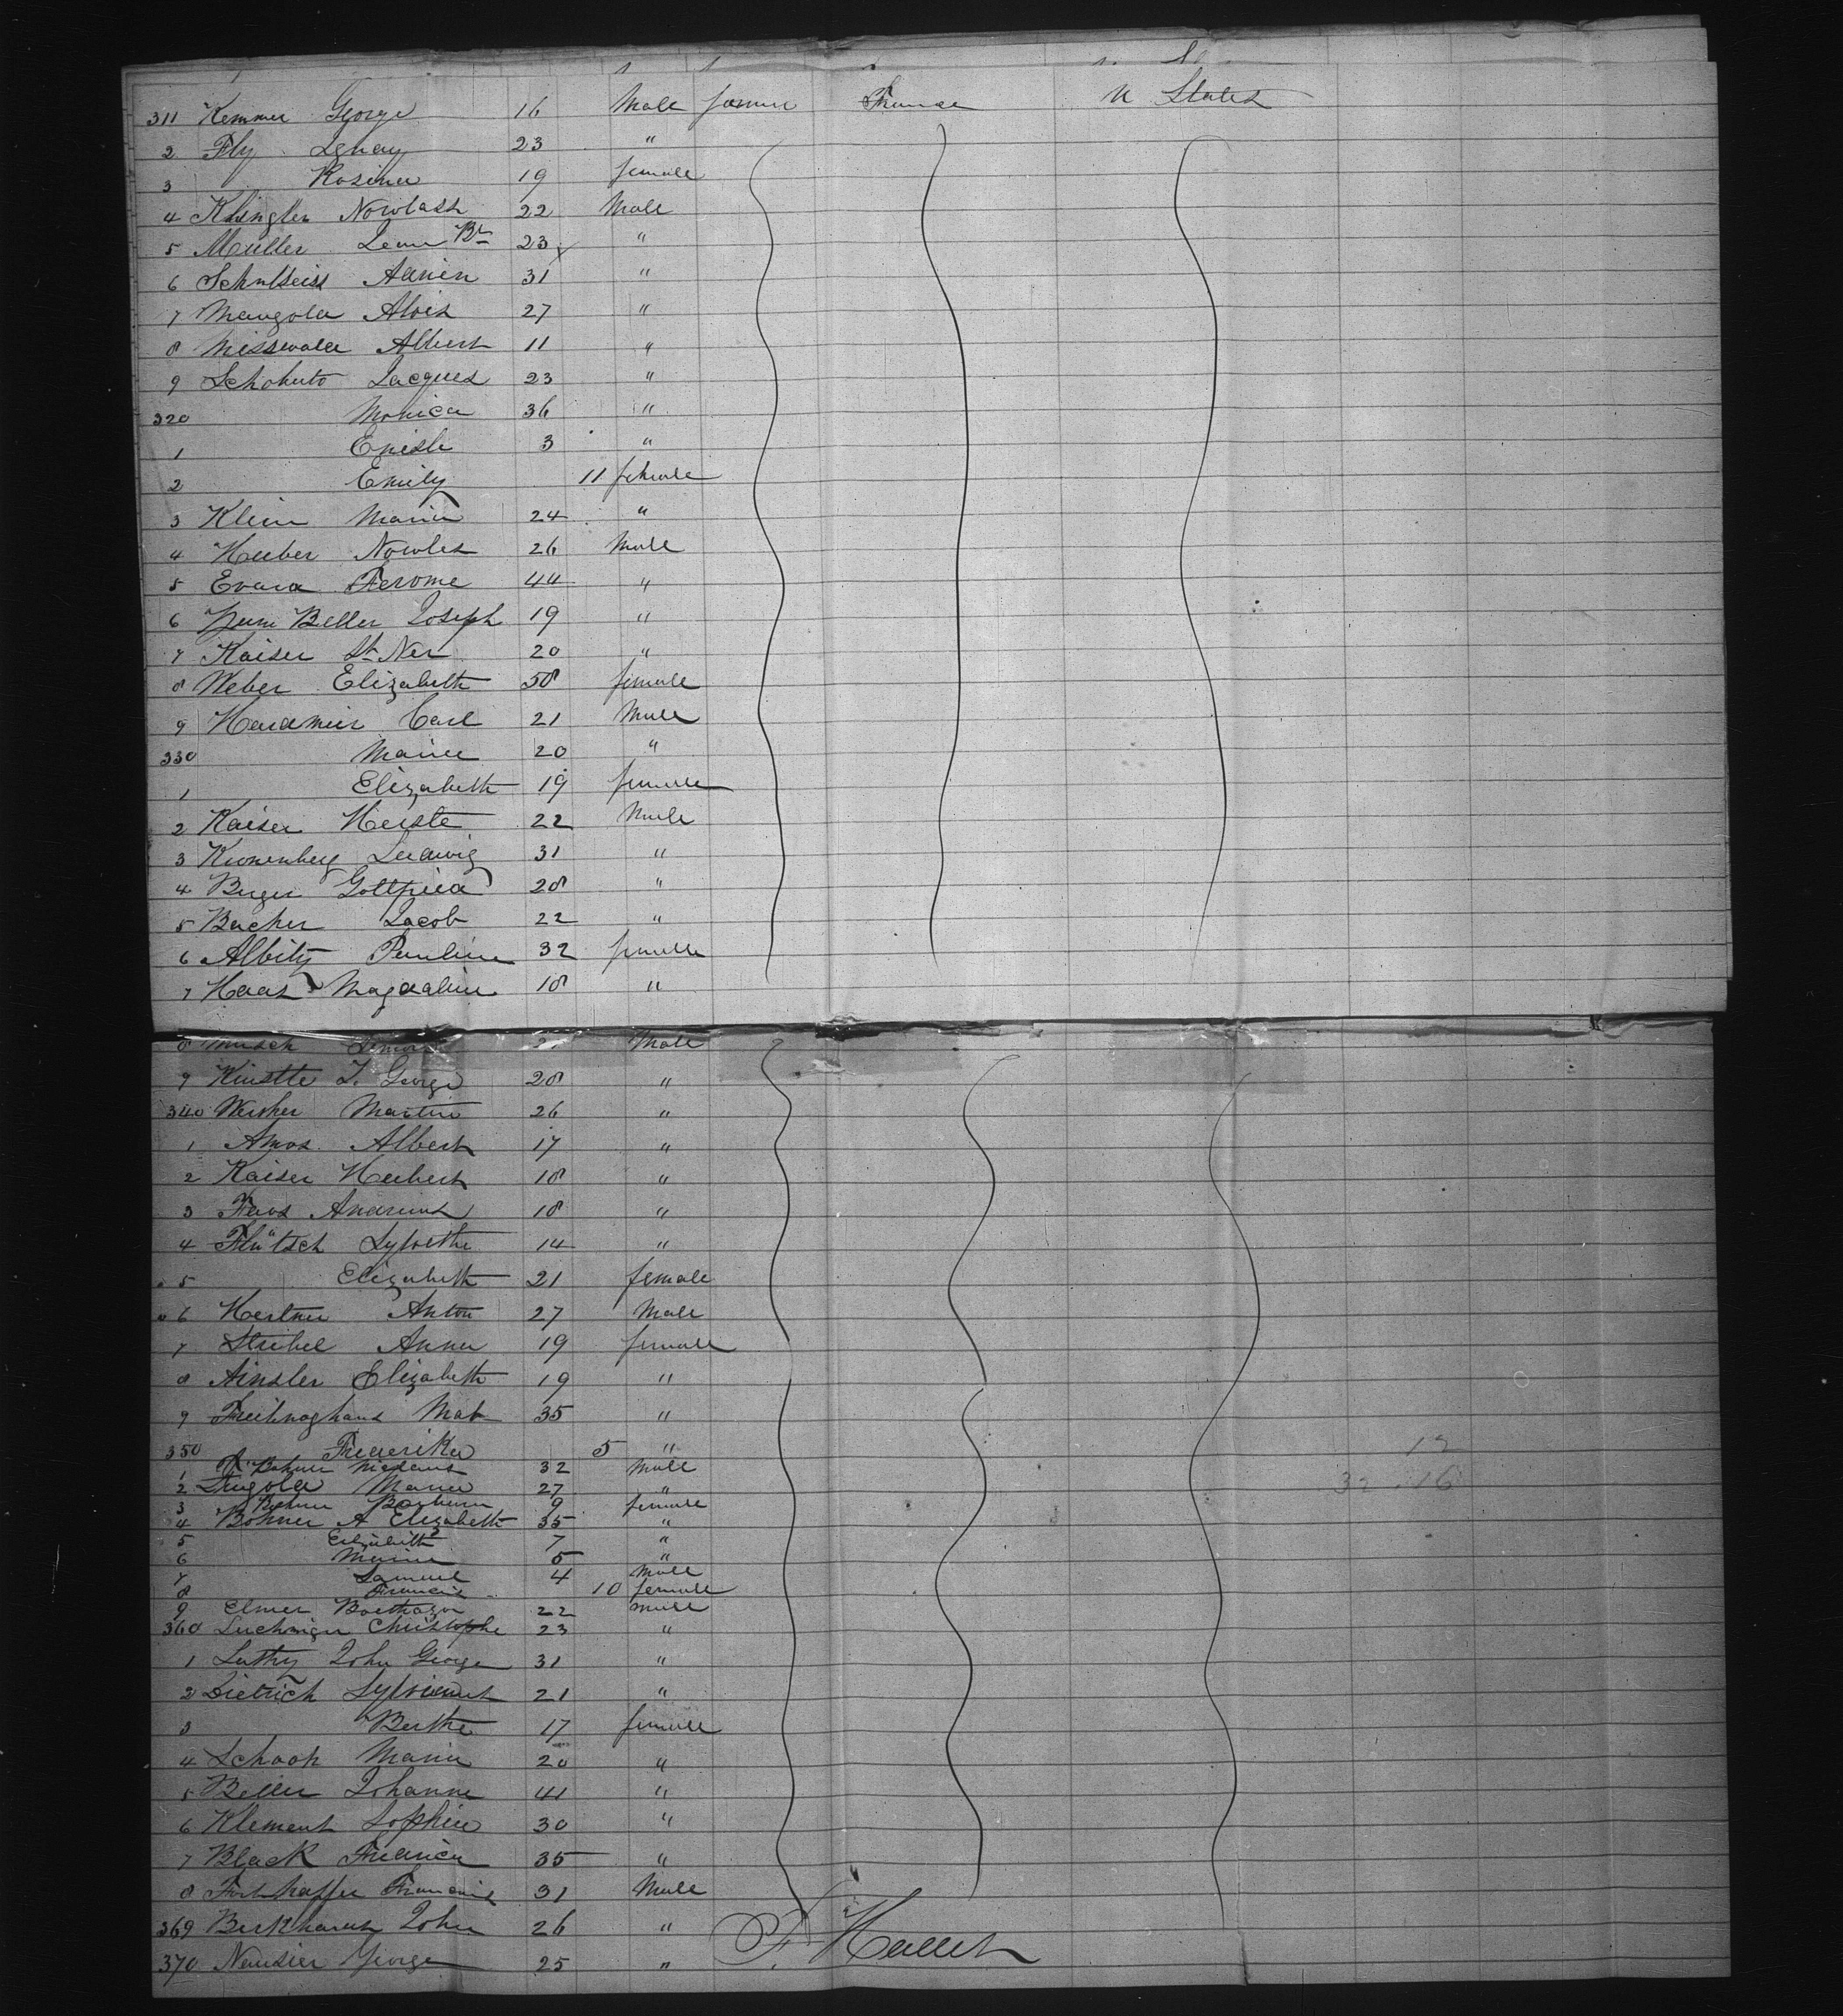 311 Kemmer George 16 Male farmer France U States
2 Fly Ignay 23 "
3 Rosina 19 female
4 Klingler Nowlash 22 Male
5 Muller Jean Bte 23 "
6 Schulseiss Adrien 31 "
7 Mangola Alois 27 "
8 Misswald Albert 11 "
9 Schohuto Jacques 23 "
320 Monica 36 "
1 3 "
2 Emily 11 female
3 Klein Marie 24 "
4 Huber Nowles 26 Male
5 Evara Jerome 44 "
6 Beller Joseph 19 "
7 Kaiser St Ner 20 "
8 Weber Elizabeth 58 female
9 Hardmeir Carl 21 Male
330 Marie 20 "
1 Elizabeth 19 female
2 Kaiser 22 Male
3 Kronenberg Ludwig 31 "
4 Berger Gottfried 28 "
5 Bucher Jacob 22 "
6 Albitz Pauline 32 female
7 Haas Magdaline 18 "
8 Musch Simon Male
9 Kinstle J. George 28 "
340 Wescher Martin 26 "
1 Amos Albert 17 "
2 Kaiser Hubert 18 "
3 Faos Andreas 18 "
4 Flütsch Sylvesthe 14 "
5 Elizabeth 21 female
6 Kestner Anton 27 Male
7 Stribel Anna 19 female
8 Ainsler Elizabeth 19 "
9 Mat 35 "
350 Frederika 5 "
1 Bohner 32 Male
2 Marie 27 "
3 Bohner Barbara 9 female
4 Bohner A Elizabeth 35 "
5 Elizabeth 7 "
6 Maria 5 "
7 Samuel 4 Male
8 Francis 10 female
9 Elmer Balthazar 22 Male
360 Luchsinger Christophe 23 "
1 Luthy John George 31 "
2 Dietrich 21 "
3 Berthe 17 female
4 Schook Marie 20 "
5 Beller Johanna 41 "
6 Klement Sophie 30 "
7 Black 35 "
8 Francois 31 Male
369 Burkhardt John 26 "
370 Neusier George 25 "
F. Hallet
12
32 . 16